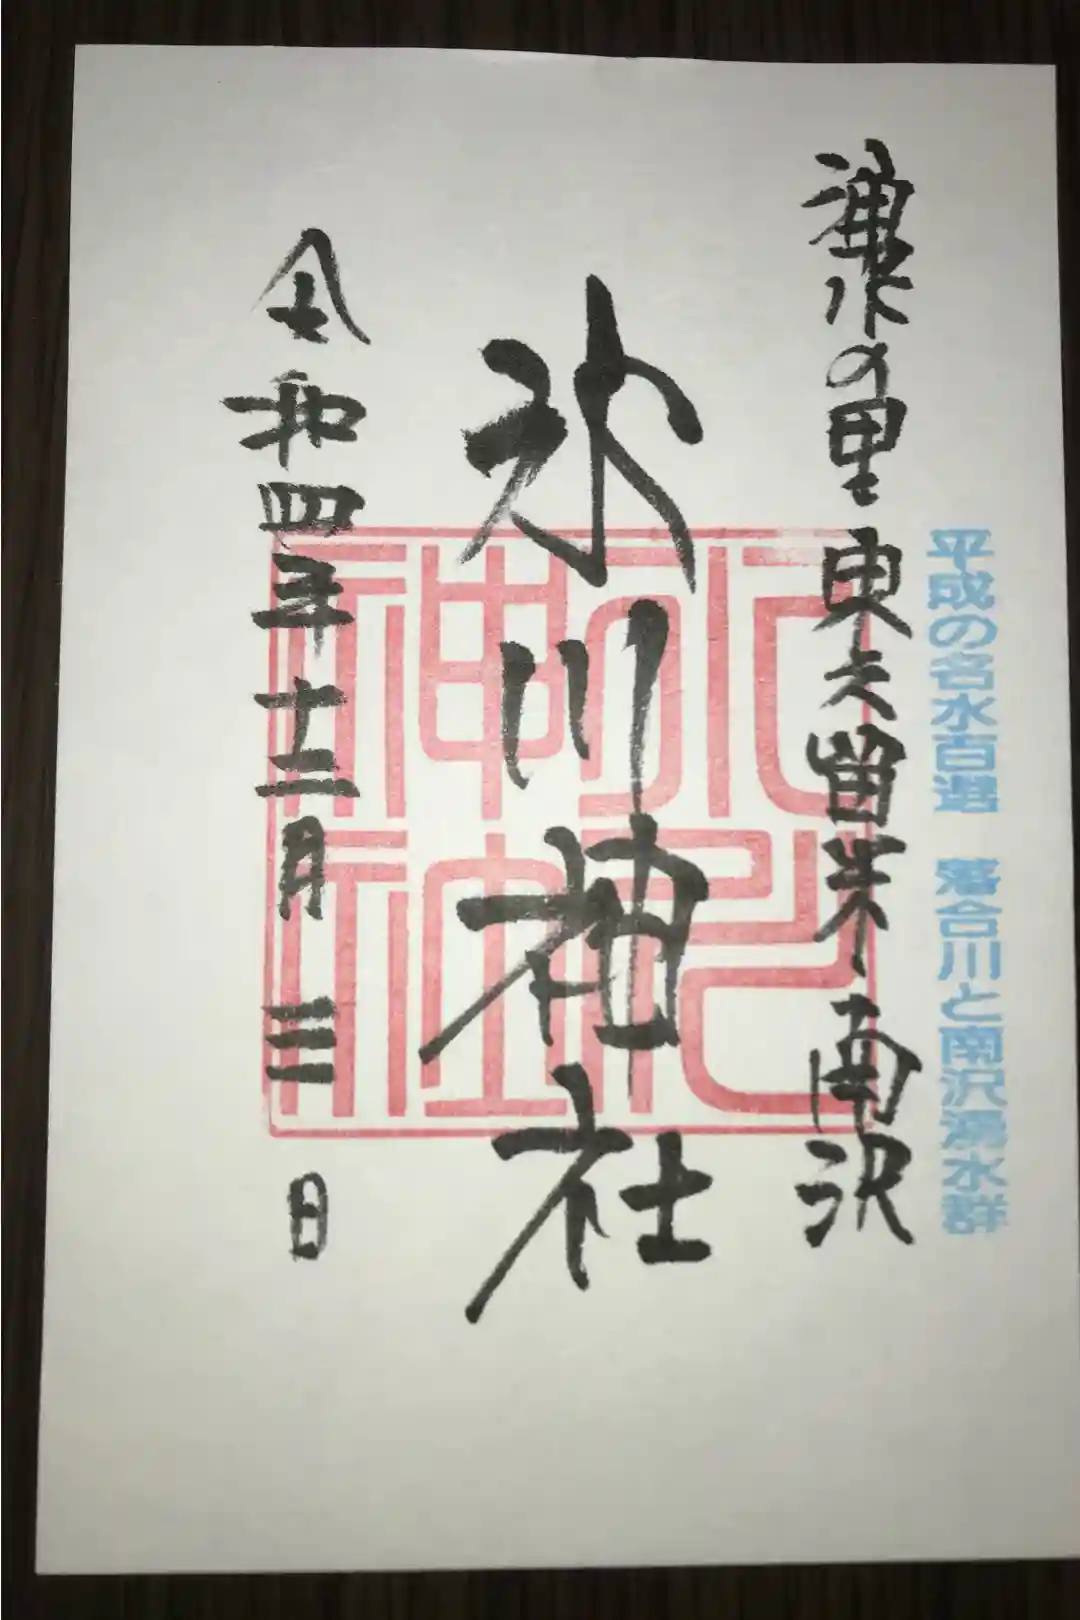 平成の名水百選 落合川と南沢湧水群
湧水の里 東久留米・南沢
氷川神社
氷川神社
令和四年十二月三日